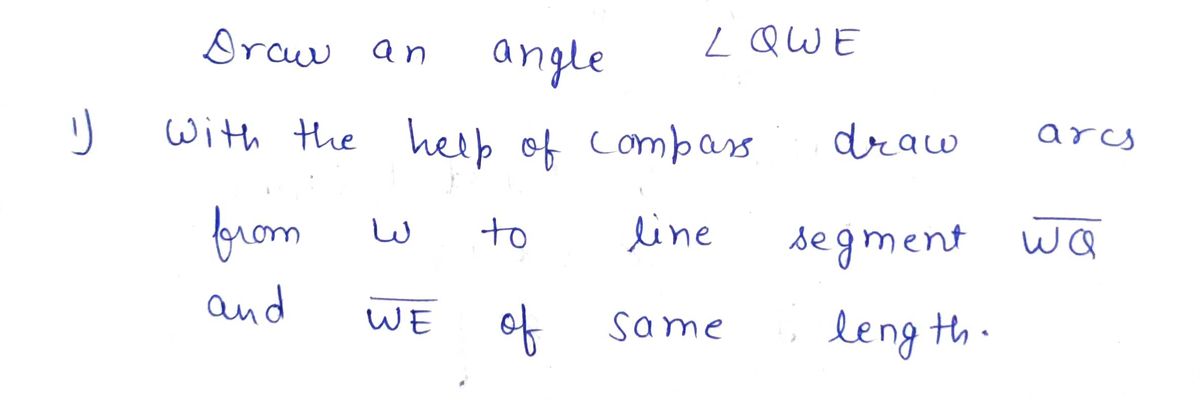 Draw an angle ∠QWE
1) With the help of compass draw arcs
from W to line segment W̅Q̅
and W̅E̅ of same length.